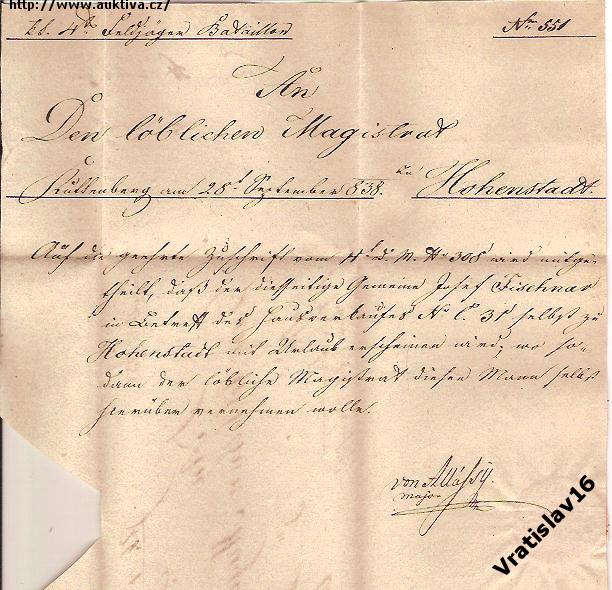 http://www.auktiva.cz/
4tes Feldjäger Bataillon
No 551
An
Den löblichen Magistrat
zu
Kuttenberg am 28t September 838. Hohenstadt.
Auf die geehrte Zuschrift vom 4t d. M. No 308 wird mitge-
theilt, daß der diesseitige Gemeine Josef Tischnar
in Betreff des Hausverkaufes No C. 31 selbst zu
Hohenstadt mit Urlaub erscheinen wird; wo so-
dann der löbliche Magistrat diesen Mann selbst
hierüber vernehmen wolle.
von
Major
Vratislav16